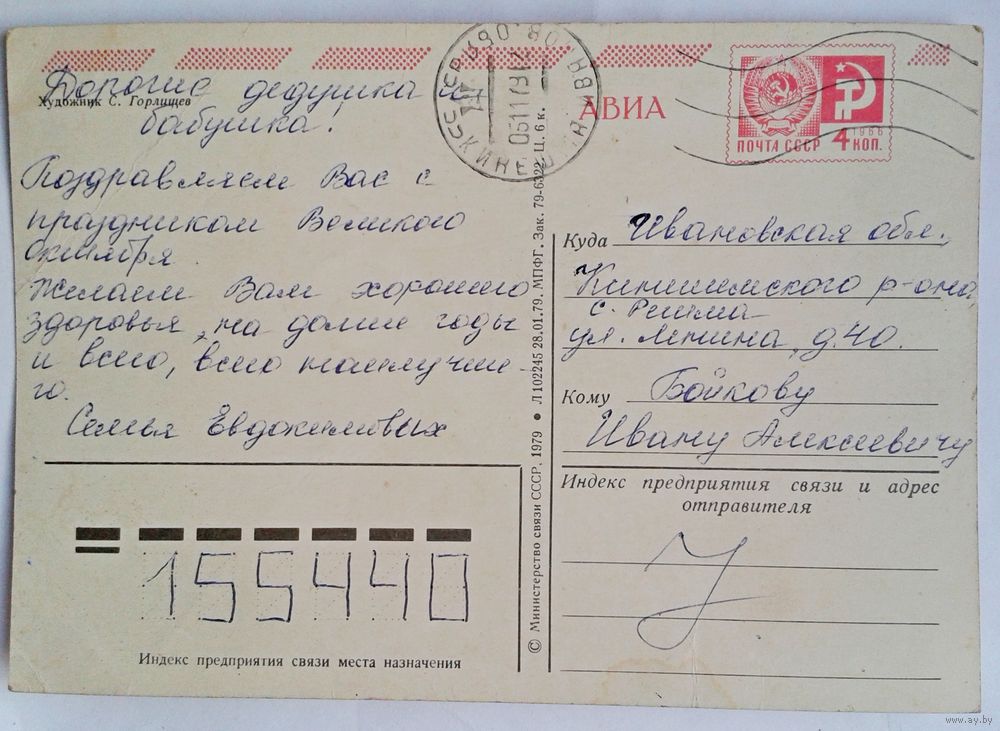 Художник С. Горлищев
Дорогие дедушка и
бабушка!
Поздравляем Вас с
праздником Великого
Октября.
Желаем Вам хорошего
здоровья, на долгие годы
и всего, всего наилучше-
го.
Семья Евдокимовых
155440
Индекс предприятия связи места назначения
© Министерство связи СССР, 1979 ● Л 102245 28.01.79. МПФГ. Зак. 79-6322 Ц. 6 к.
АВИА
ПОЧТА СССР
1966
4 КОП.
Куда Ивановская обл.,
Кинешемского р-она
с. Решма
ул. Ленина, д. 40.
Кому Бойкову
Ивану Алексеевичу
Индекс предприятия связи и адрес
отправителя
www.ay.by